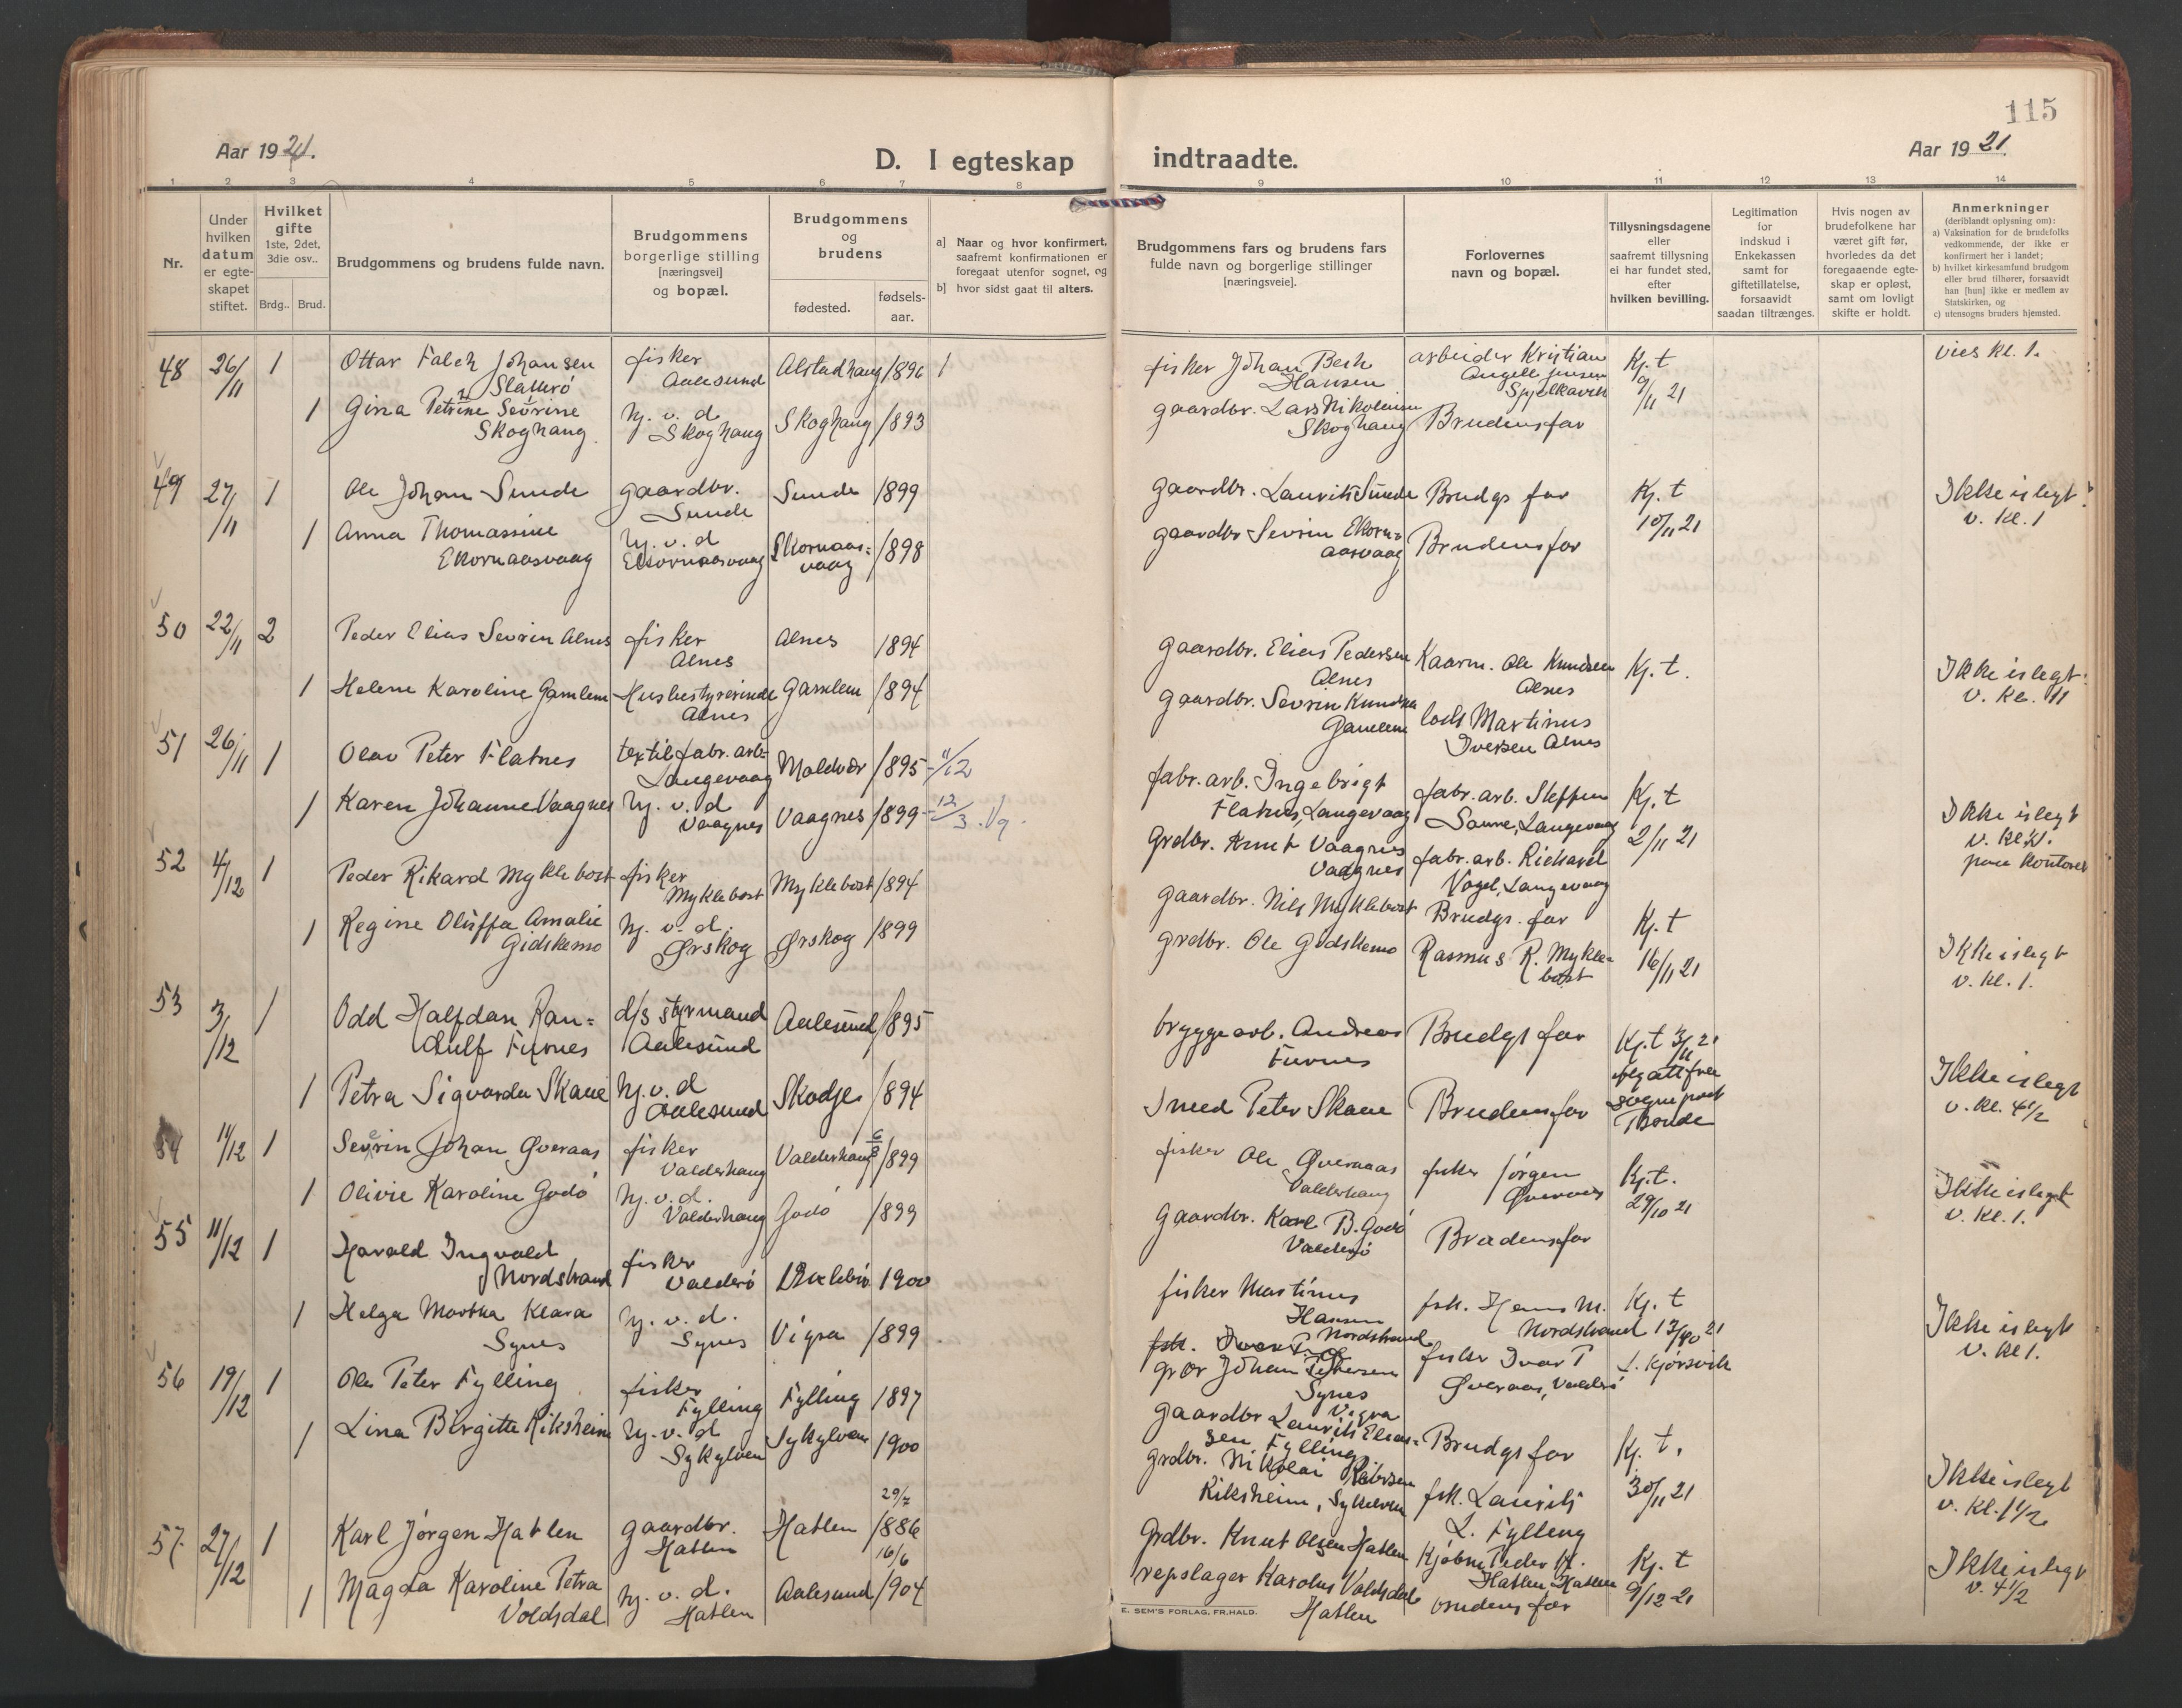 115
Aar 1921.
D. I egteskap indtraadte.
Aar 1921.
1 2 3 4 5 6 7 8 9 10 11 12 13 14
Nr.
Under hvilken datum er egteskapet stiftet.
Hvilket gifte
1ste, 2det, 3die osv..
Brdg.. Brud.
Brudgommens og brudens fulde navn.
Brudgommens borgerlige stilling [næringsvei] og bopæl.
Brudgommens og brudens
fødested.
fødsels-aar.
a] Naar og hvor konfirmert, saafremt konfirmationen er foregaat utenfor sognet, og
b] hvor sidst gaat til alters.
Brudgommens fars og brudens fars fulde navn og borgerlige stillinger [næringsveie].
Forlovernes navn og bopæl.
Tillysningsdagene eller saafremt tillysning ei har fundet sted, efter hvilken bevilling.
Legitimation for indskud i Enkekassen samt for giftetillatelse, forsaavidt saadan tiltrænges.
Hvis nogen av brudefolkene har været gift før, hvorledes da det foregaaende egteskap er opløst, samt om lovligt skifte er holdt.
Anmerkninger
(deriblandt oplysning om):
a) Vaksination for de brudefolks vedkommende, der ikke er konfirmert her i landet;
b) hvilket kirkesamfund brudgom eller brud tilhører, forsaavidt han [hun] ikke er medlem av Statskirken, og
c) utensogns bruders hjemsted.
48 26/11 1 Ottar Falch Johansen fisker Aalesund Alstadhaug 1896 fisker Johan Bech Hansen arbeider Kristian Angell Jensen Spjelkavik Kj. t 9/11 21 vies kl. 1.
1 Gina Petrine Sevrine Skoghaug hj. v. d Skoghaug Skoghaug 1893 gaardbr. Lars Nikolaisen Skoghaug Brudens far
49 27/11 1 Ole Johan Sunde gaardbr. Sunde Sunde 1899 gaardbr. Laurits Sunde Brudgs far Kj. t 10/11 21 Ikke islegt v. kl. 1
1 Anna Thomassine Ekornaasvaag hj. v. d Ekornaasvaag Ekornaas=vaag 1898 gaardbr Sevrin Ekorn=aasvaag Brudens far
50 22/11 2 Peder Elias Sevrin Alnes fisker Alnes Alnes 1894 gaardbr. Elias Pedersen Alnes Kaarm. Ole Knudsen Alnes Kj. t. Ikke islegt v. kl. 11
1 Helene Karoline Gamlem Husbestyrerinde Alnes Gamlem 1894 gaardbr. Sevrin Knudsen Gamlem lods Martinus Iversen Alnes
51 26/11 1 Olav Peter Flatnes textilfabr. arb. Langevaag Moldvær 1895 11/12 fabr. arb. Ingebrigt Flatnes, Langevaag fabr. arb. Steffen Langevaag Kj. t 2/11 21 Ikke islegt v. kl. paa kontoret
1 Karen Johanne Vaagnes hj. v. d Vaagnes Vaagnes 1899 12/3 Grdbr. Knut Vaagnes Vaagnes fabr. arb. Richard Vagel, Langevaag
52 4/12 1 Peder Rikard Myklebost fisker Myklebost Myklebost 1894 gaardbr. Nils Myklebost Brudgs. far Kj. t 16/11 21 Ikke islegt v. kl. 1.
1 Regine Oluffa Amalie Gidskemo hj. v. d. Ørskog Ørskog 1899 grdbr. Ole Gidskemo Rasmus R. Mykle=bost
53 3/12 1 Odd Halfdan Ran=dulf Furnes d/s styrmand Aalesund Aalesund 1895 bryggearb. Andreas Furnes Brudgs far Kj. t 3/11 21 Ikke islegt v. kl. 4 1/2
1 Petra Sigvarda Skaue hj. v. d Aalesund Skodje 1894 Smed Peter Skaue Brudens far
54 11/12 1 Sevrin Johan Øveraas fisker Valderhaug Valderhaug 6/8 1899 fisker Ole Øveraas Valderhaug fisker Jørgen Øveraas Kj. t. 29/10 21 Ikke islegt v. kl. 1.
1 Olivie Karoline Godø hj. v. d. Valderhaug Godø 1899 gaardbr. Karl B. Godø Valderø Brudens far
55 11/12 1 Harald Ingvald Nordstrand fisker Valderø 1900 fisker Martinus Hansen Nordstrand fsk. Hans M. Nordstrand Kj. t 13/10 21 Ikke islegt v. kl 1.
1 Helga Martha Klara Synes hj. v. d. Synes Vigra 1899 Johan Petersen Synes Vigra fisker Ivar P Øveraas, Valderø L. Kjørsvik
56 19/12 1 Ole Peter Fylling fisker Fylling Fylling 1897 gaardbr Laurits Elias=sen Fylling Brudgs far Kj. t. 30/11 21 Ikke islegt v. kl. 1 1/2
1 Lina Birgitte Riksheim hj. v. d Sykylven Sykylven 1900 grdbr. Nikolai Riksheim, Sykelven fsk. Laurits L. Fylling
57 27/12 1 Karl Jørgen Hatlen gaardbr. Hatlen Hatlen 29/7 1886 Grdbr. Knut Olsen Hatlen Kjøbm Peder K. Hatlen Hatlen Kj. t 9/12 21 Ikke islegt v. 4 1/2
1 Magda Karoline Petra Voldsdal hj. v. d. Hatlen Aalesund 16/6 1904 repslager Karolus Voldsdal Hatlen brudens far
E. SEM'S FORLAG, FR.HALD.